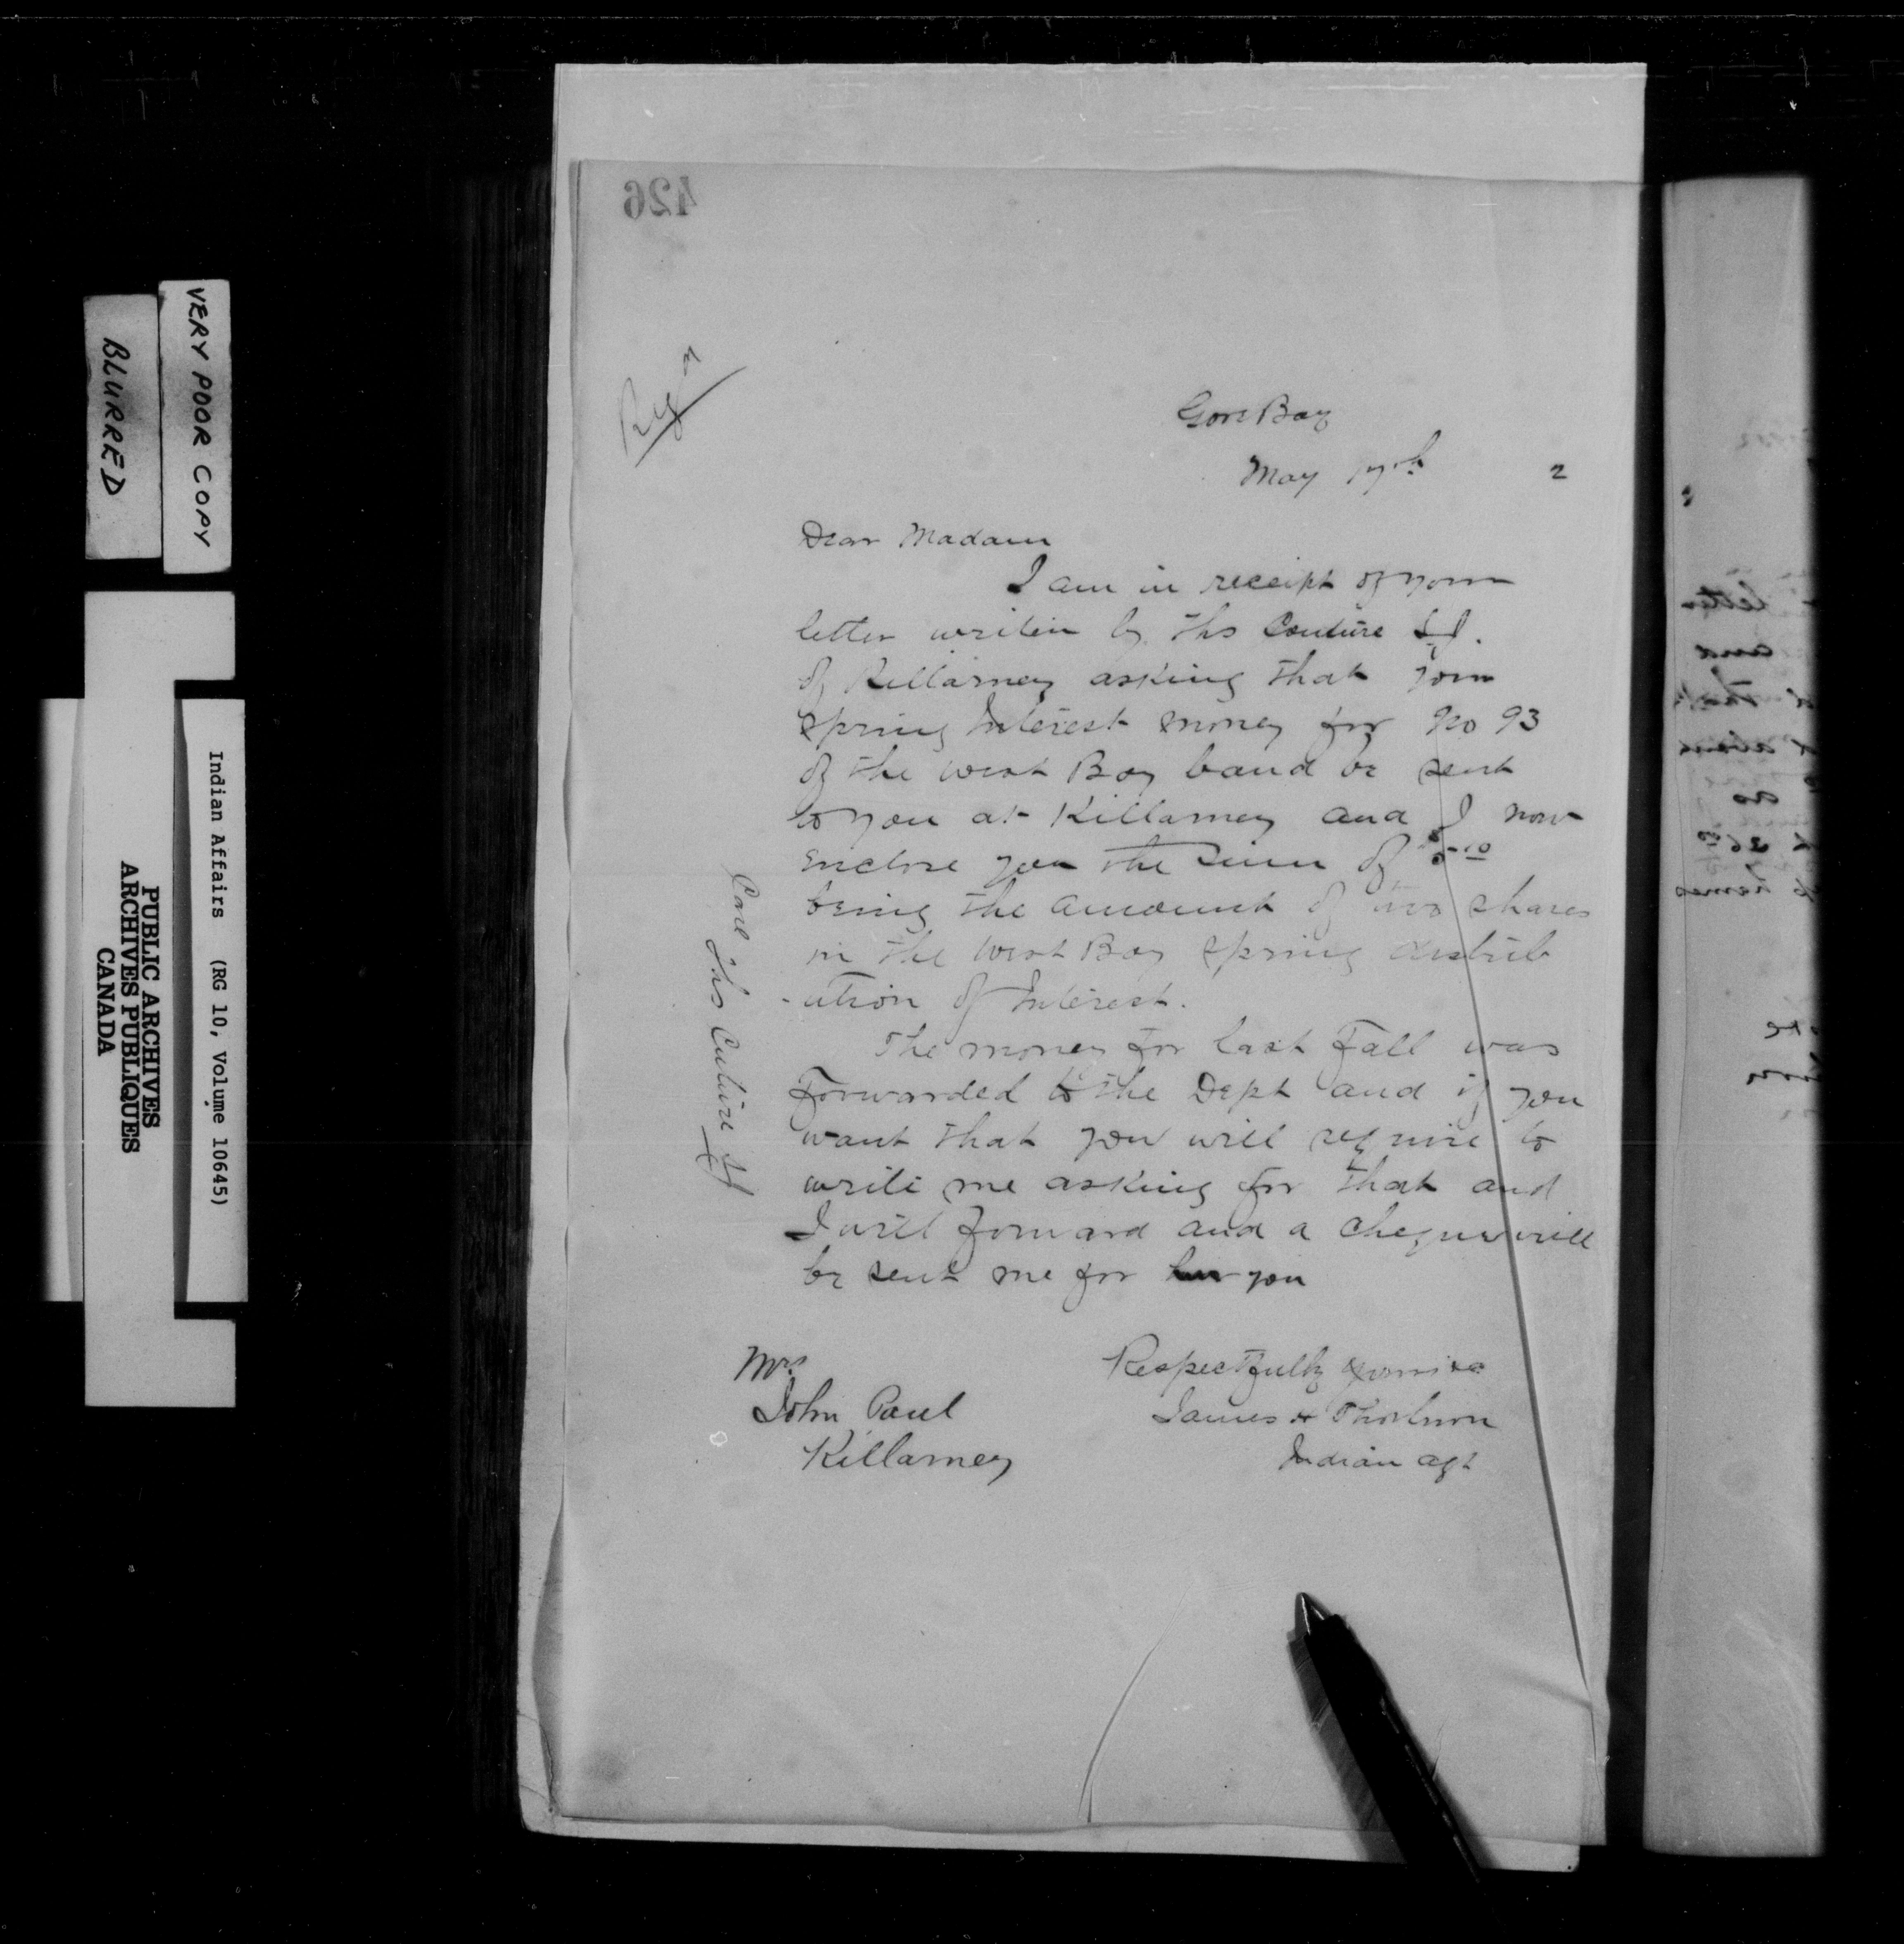 426
Regd
Gore Bay
May 17th 2
Dear Madam
I am in receipt of your
letter writen by Ths Couture S.J.
of Killarney asking that your
Spring Interest money for No 93
of the West Bay band be sent
to you at Killarney and I now
enclose you the sum of
being the amount of two shares
in the West Bay Spring distrib
-ution of Interest.
The money for last Fall was
Forwarded to the Dept and if you
want that you will require to
write me asking for that and
I will forward and a cheque will
be sent me for you
Mrs
John Paul
Killarney
Respectfully yours
James H Thorburn
Indian Agt
Care Ths Cuture SJ
VERY POOR COPY
BLURRED
Indian Affairs (RG 10, Volume 10645)
PUBLIC ARCHIVES
ARCHIVES PUBLIQUES
CANADA